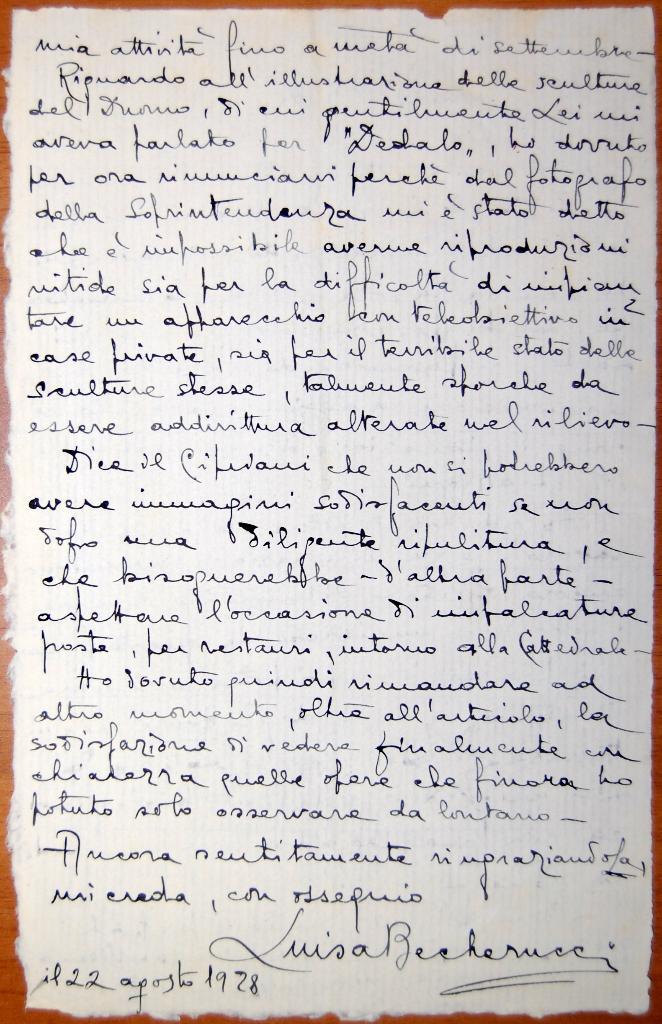 mia attività fino a metà di settembre—
Riguardo all'illustrazione delle sculture
del Duomo, di cui gentilmente Lei mi
aveva parlato per "Dedalo", ho dovuto
per ora rinunciarvi perchè dal fotografo
della Soprintendenza mi è stato detto
che è impossibile averne riproduzioni
nitide sia per la difficoltà di impian
tare un apparecchio con teleobiettivo in
case private, sia per il terribile stato delle
sculture stesse, talmente sporche da
essere addirittura alterate nel rilievo—
Dice il Cipriani che non si potrebbero
avere immagini sodisfacenti se non
dopo una diligente ripulitura, e
che bisognerebbe – d'altra parte –
aspettare l'occasione di impalcature
poste, per restauri, intorno alla Cattedrale—
Ho dovuto quindi rimandare ad
altro momento, oltre all'articolo, la
sodisfazione di vedere finalmente con
chiarezza quelle opere che finora ho
potuto solo osservare da lontano—
Ancora sentitamente ringraziandola,
mi creda, con ossequio
Luisa Becherucci
il 22 agosto 1928